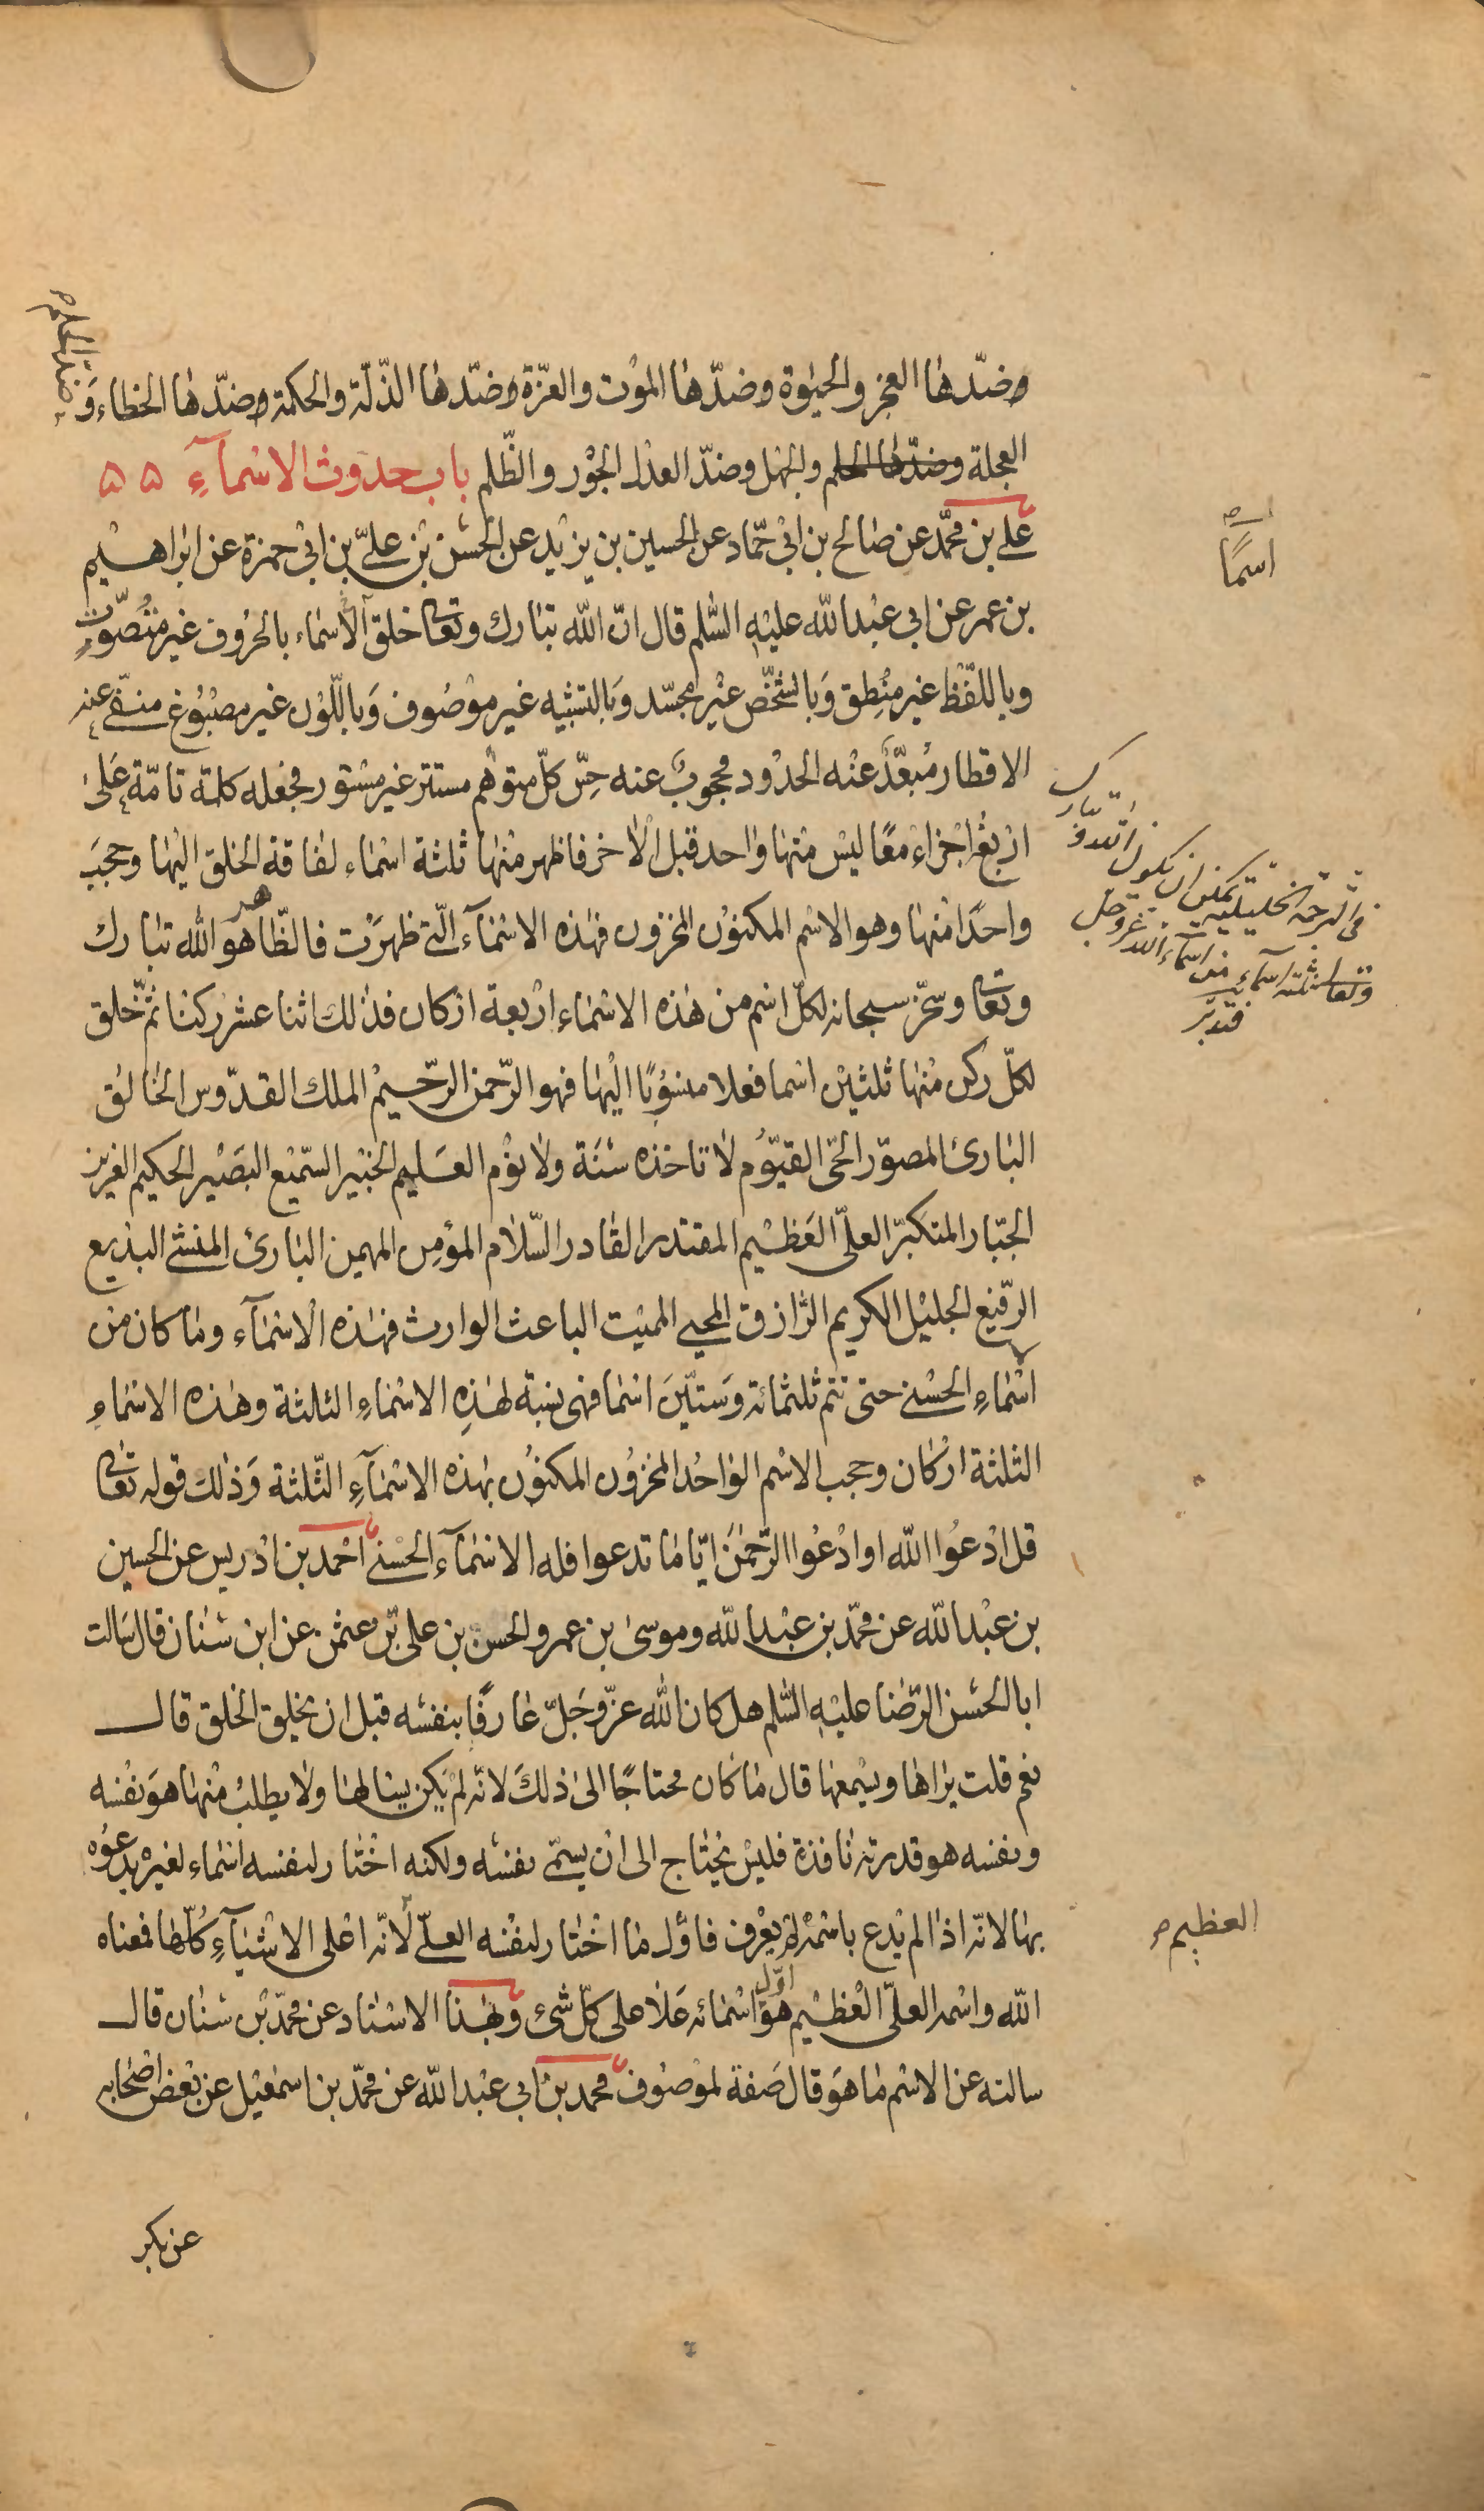 وضدّها العجز والحيٰوة وضدّها الموْت والعزّة وضدّها الذّلّة والحكمة وضدّها الخطاء وَ
وضدّ الحلم
العجلة وضدّها الحلم والجهل وضدّ العدل الجوْر والظّلم باب حدوث الاسْمآءِ ۵۵
علي بن محمّد عن صٰالح بن ابيْ حمّاد عن الحسين بن يزيْد عن الحسَن بْن عليّ بن ابيْ حمزة عن ابرٰاهيْم
اسمًا
بن عمر عن ابي عبْد اللّه عليْهِ السّٰلم قال انّ اللّه تبٰارك وتعٰا خلق الاسْمٰاء بالحرُوف غير متُصَوّتٍ
وباللّفْظ غير مُنْطِق وَبالشّخْص غيْر مجسّد وَبالتشبْيه غير موْصُوف وَباللّوْن غير مصْبُوْغ منفّي عنه
الاقطار مُبعّدٌ عنْه الحدُود محجوبٌ عنه حِسّ كلّ متوهّم مستتر غير مسْتور فجعله كلمة تامّة عَلىٰ
ارْبعْ اجْزاء معًا ليْس منْها وٰاحد قبل الاٰخر فاظهر منْها ثلثة اسْمٰاء لفاقة الخلق اليْها وحجبَ
في الترجمة الخليلية يمكن ان يكون اللّه وتبارك
وتعا ثلثة اسماء من اسماء اللّه عزّ وجل
فتدبّر
واحدًا منْها وهو الاسْم المكنوْن المخزون فهٰذه الاسْمٰآء الّتي ظهرَت فالظّاهر هو اللّه تبٰارك
وتعٰا وسخّر سبحانه لكلّ اسْم من هٰذه الاسْمٰاء ارْبعة ارْكان فذٰلك اثنا عشر ركنا ثمّ خلق
لكلّ ركن منْها ثلثيْن اسْما فعلا منسُوْبًا اليْها فهو الرّحمن الرّحيْم الملك القدّوس الخٰالق
البٰارئ المصوّر الحيّ القيّوُم لاٰ تاخذه سَنَة ولاٰ نوْم العَليم الخبيْر السّميْع البصَيْر الحكيم العزيز
الجبّار المتكبّر العليّ العَظيْم المقتدر القٰادر السّلاٰم المؤمِن المهيمن البٰارئ المنشئ البديع
الرّفيْع الجليْل الكريم الرّٰازق المحيي المميْت الباعث الوارث فهٰذه الاسْمٰآء ومٰا كان من
اسْمٰاءِ الحسْنى حتى تتم ثلثمائة وَستّيْنَ اسْما فهي نسْبة لهٰذِه الاسْمٰاءِ الثلثة وهٰذه الاسْمٰاءِ
الثلثة ارْكان وحجب الاسْم الوٰاحُد المخزُون المكنوُن بهٰذه الاسْمٰآءِ الثّلثة وَذٰلك قوله تعٰا
قل ادْعُوا اللّه او ادْعُوا الرّحْمٰنَ ايّا مٰا تدعوا فله الاسْمٰآء الحسْنى احْمد بن ادْريس عن الحسين
بن عبْد اللّه عن محمّد بن عبْد اللّه وموسىٰ بن عمر والحسن بن علي بن عثمٰن عن ابن سنٰان قال سَالت
ابا الحسَن الرّضٰا عليْهِ السّٰلم هل كان اللّه عزّ وجَلّ عٰارفًا بنفسَه قبل ان يخلق الخلق قال
نعم قلت يرٰاهٰا ويسْمعهٰا قال مٰا كٰان محتاجًا الى ذٰلكَ لانّه لمْ يكن يسٰالهٰا ولاٰ يطلبُ منْهٰا هوَ نفْسه
ونفسه هو قدرته نٰافذة فليْس يحْتٰاج الى انْ يسمّي نفسَه ولكنه اخْتٰار لنفسه اسْمٰاء لغيْره يدعُوْه
بهٰا لانّه اذٰا لم يُدع باسْمه لم يعْرف فاوّل مٰا اخْتٰار لنفْسه العليّ لانّه اعْلى الاشْيٰآءِ كُلّهٰا فمعْناه
العظيم
اللّه واسْمه العليّ العْظيْم هوَ اوّل اسْمٰائه عَلاٰ على كلّ شئ وبهٰذا الاسْنٰاد عن محمّد بْن سنٰان قال
سالته عن الاسْم مٰا هوَ قال صَفة لموْصوْف محمّد بنْ ابي عبْد اللّه عن محمّد بن اسمٰعيْل عن بعْض اصْحٰابه
عن بكر